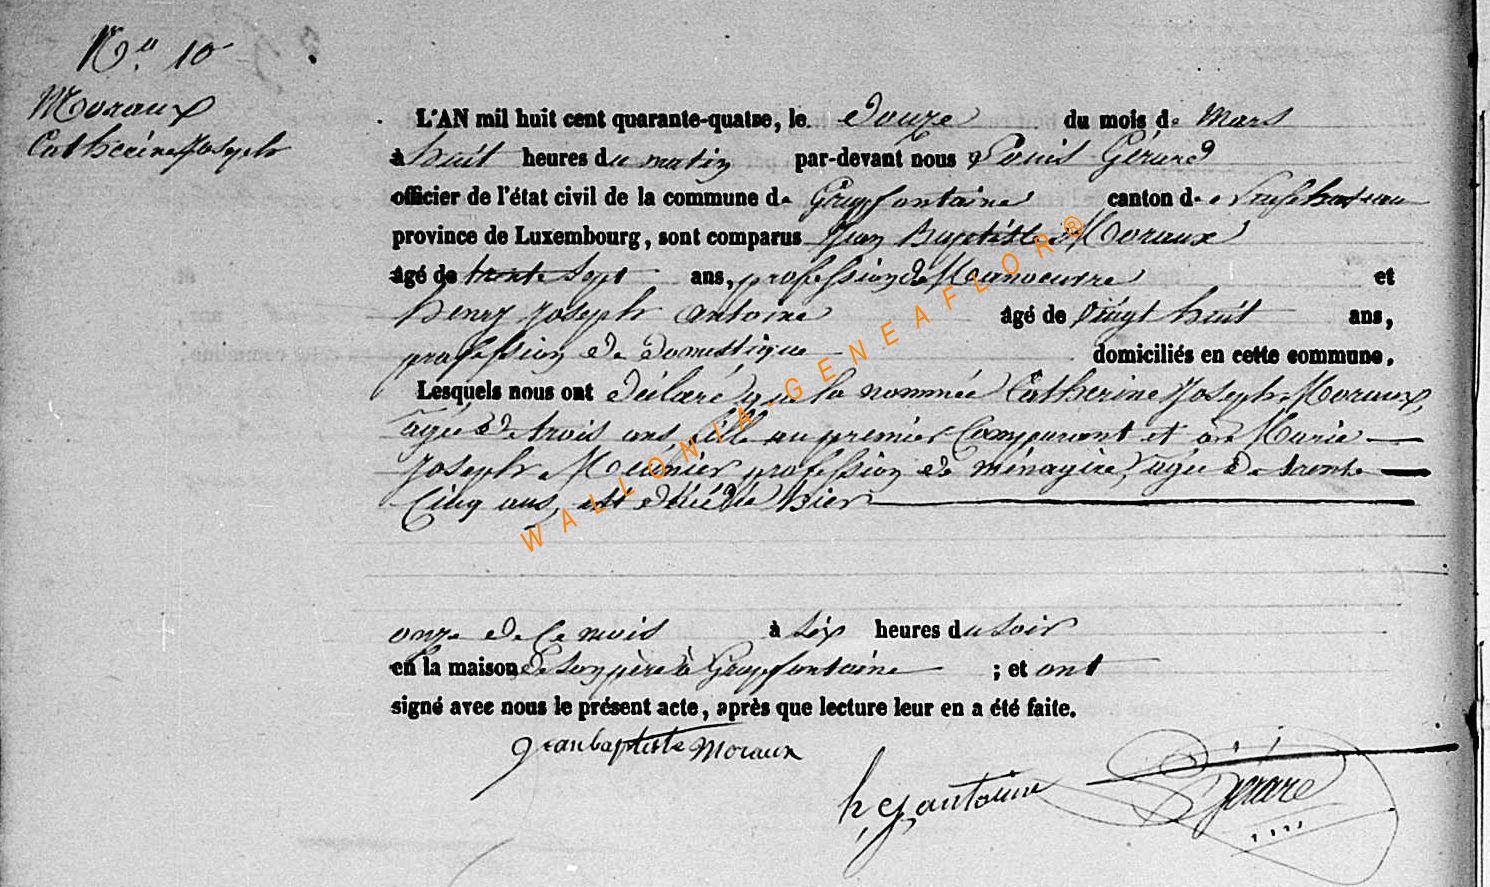 No. 10
Moraux
Catherine Joseph
L'AN mil huit cent quarante-quatre, le douze du mois de Mars
à huit heures du matin par-devant nous Louis Gérard
officier de l'état civil de la commune de Grapfontaine canton de Neufchateau
province de Luxembourg, sont comparus Jean Baptiste Moraux
âgé de trente sept ans, profession de Manoeuvre et
henry Joseph antoine âgé de Vingt huit ans,
profession de domestique domiciliés en cette commune.
Lesquels nous ont déclaré que la nommée Catherine Joseph Moraux,
agée de trois ans, fille au premier Comparant et de Marie
Joseph Meunier profession de ménagère, agée de trente
Cinq ans, est décédée hier
onze de Ce mois à Six heures du Soir
en la maison de son père à Grapfontaine ; et ont
signé avec nous le présent acte, après que lecture leur en a été faite.
Jean baptiste Moraux
h j antoine
L Gérard
WALLONIA-GENEAFLOR®